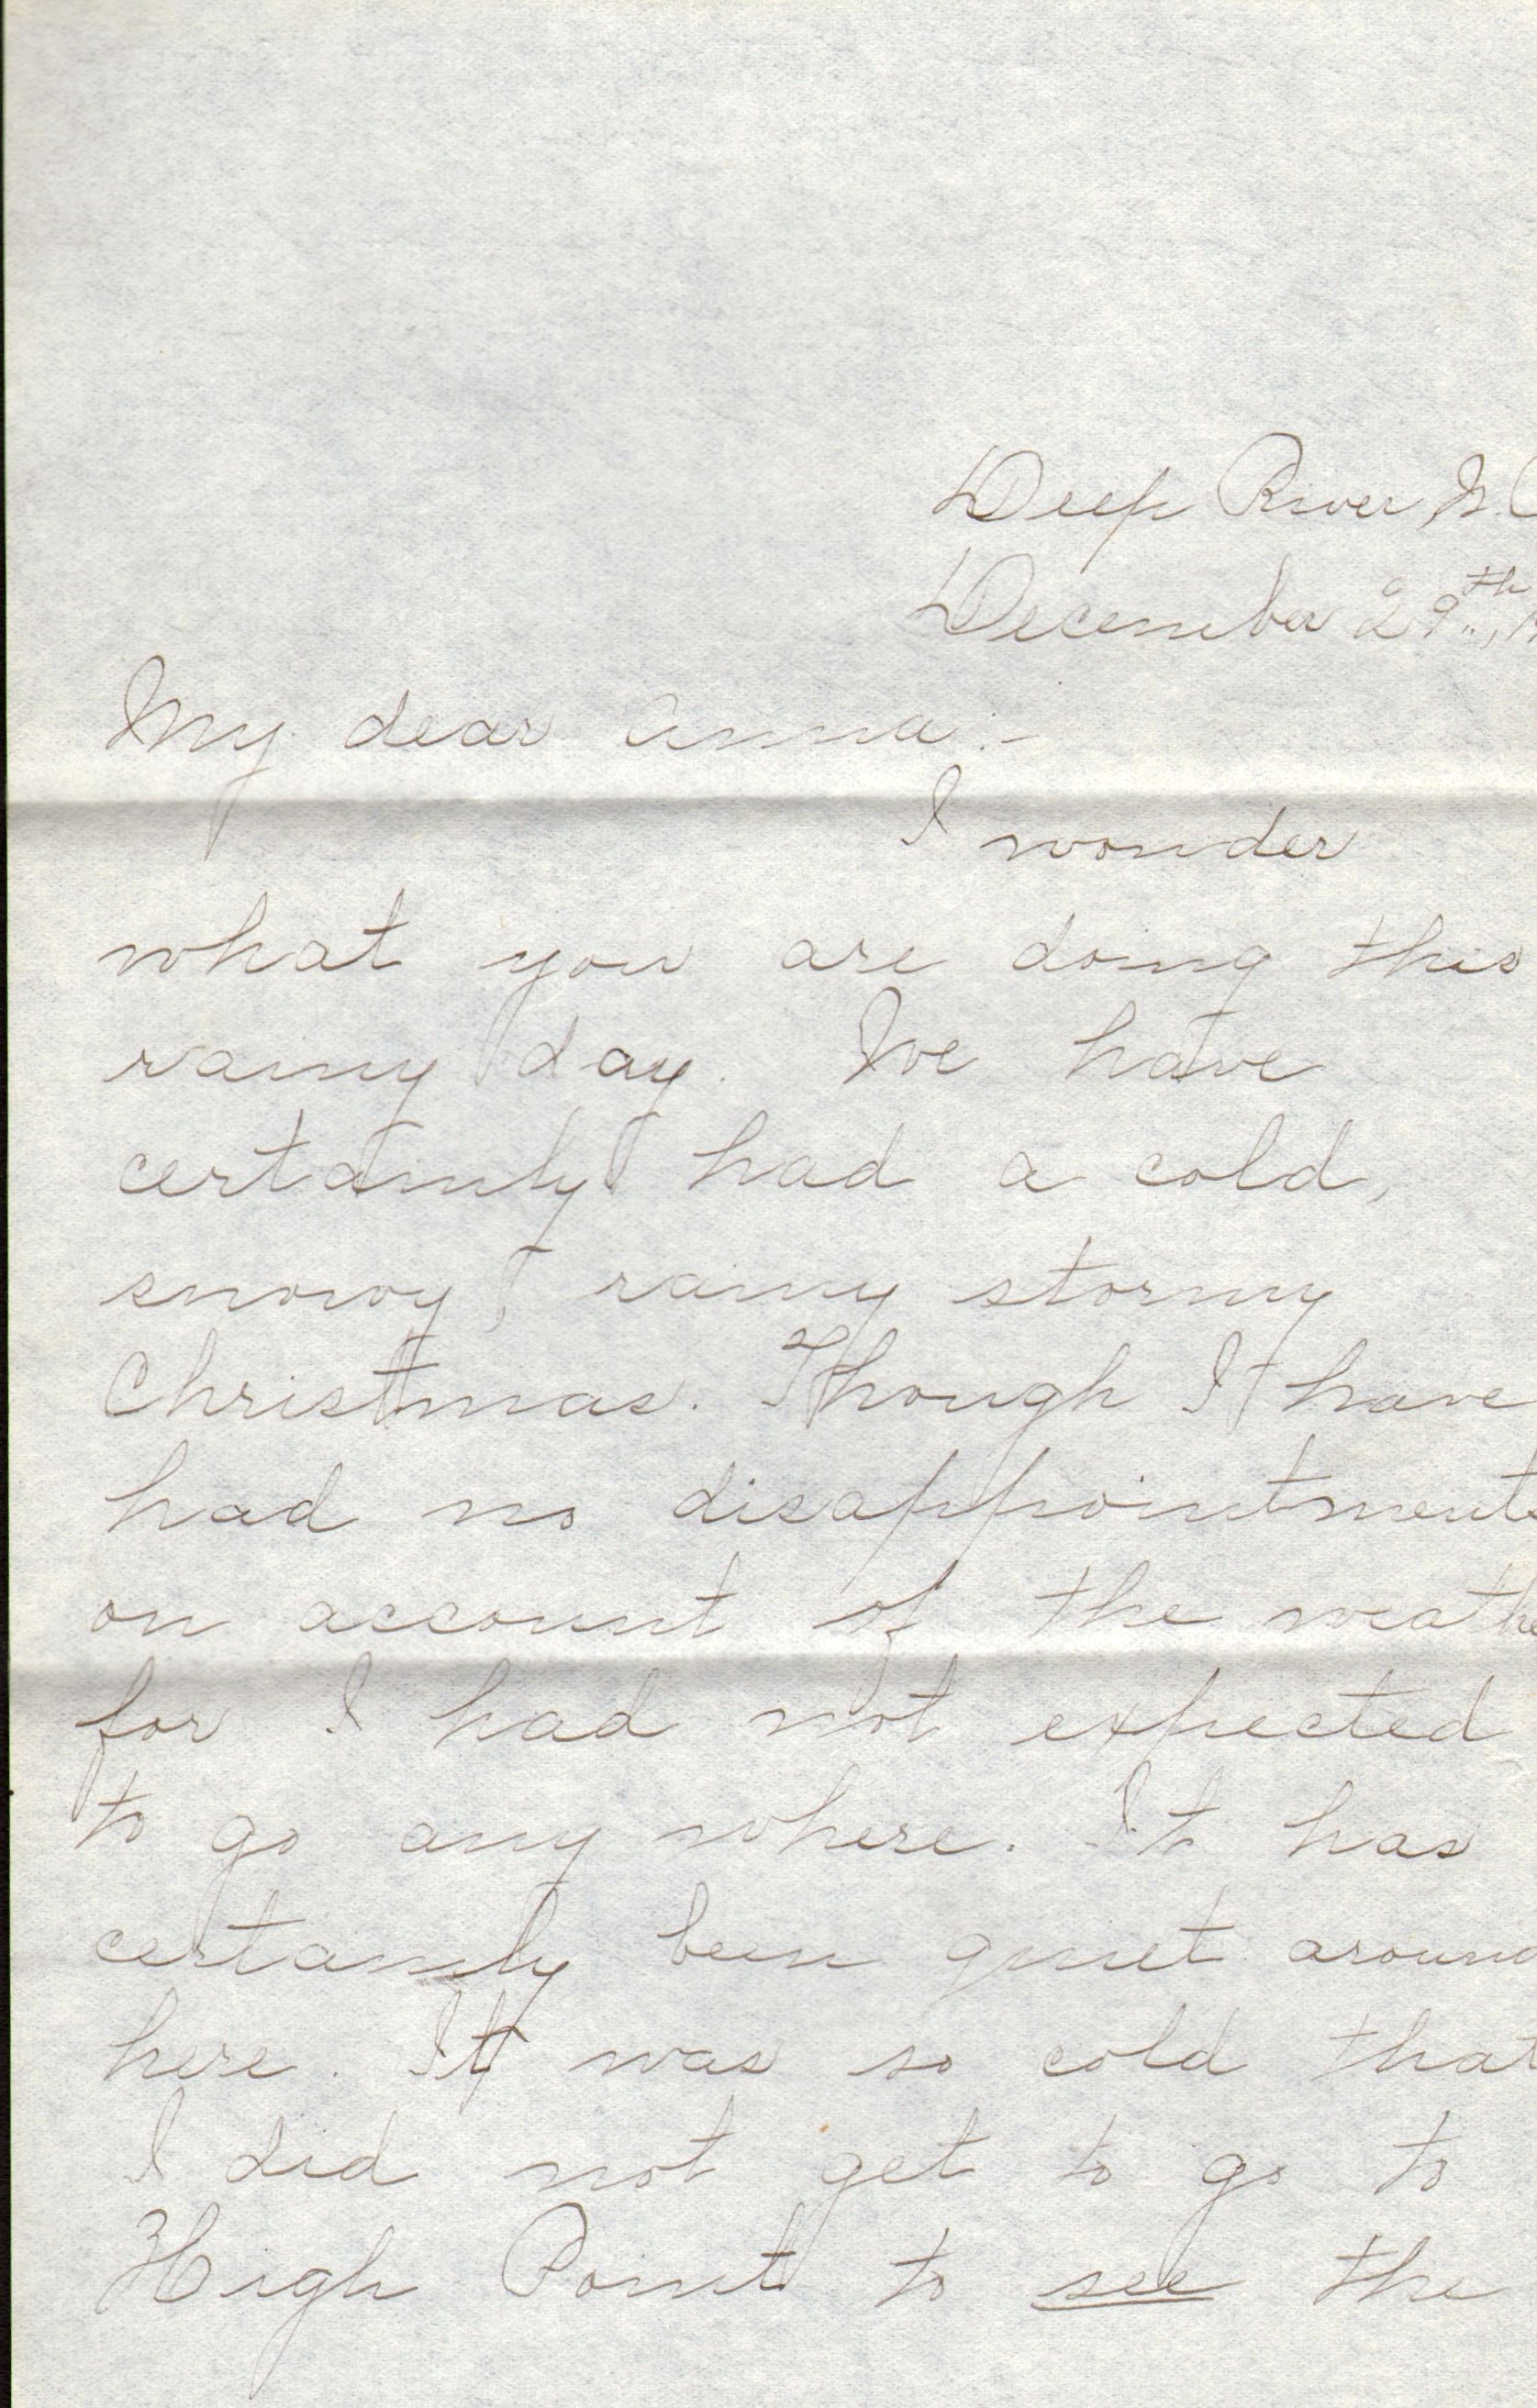 Deep River N. C
December 29th, 1
My dear Anna:-
I wonder
what you are doing this
rainy day. We have
certainly had a cold,
snowy, rainy stormy
Christmas. Though I have
had no disappointments
on account of the weathe
for I had not expected
to go any where. It has
certainly been quiet around
here. It was so cold that
I did not get to go to
High Point to see the